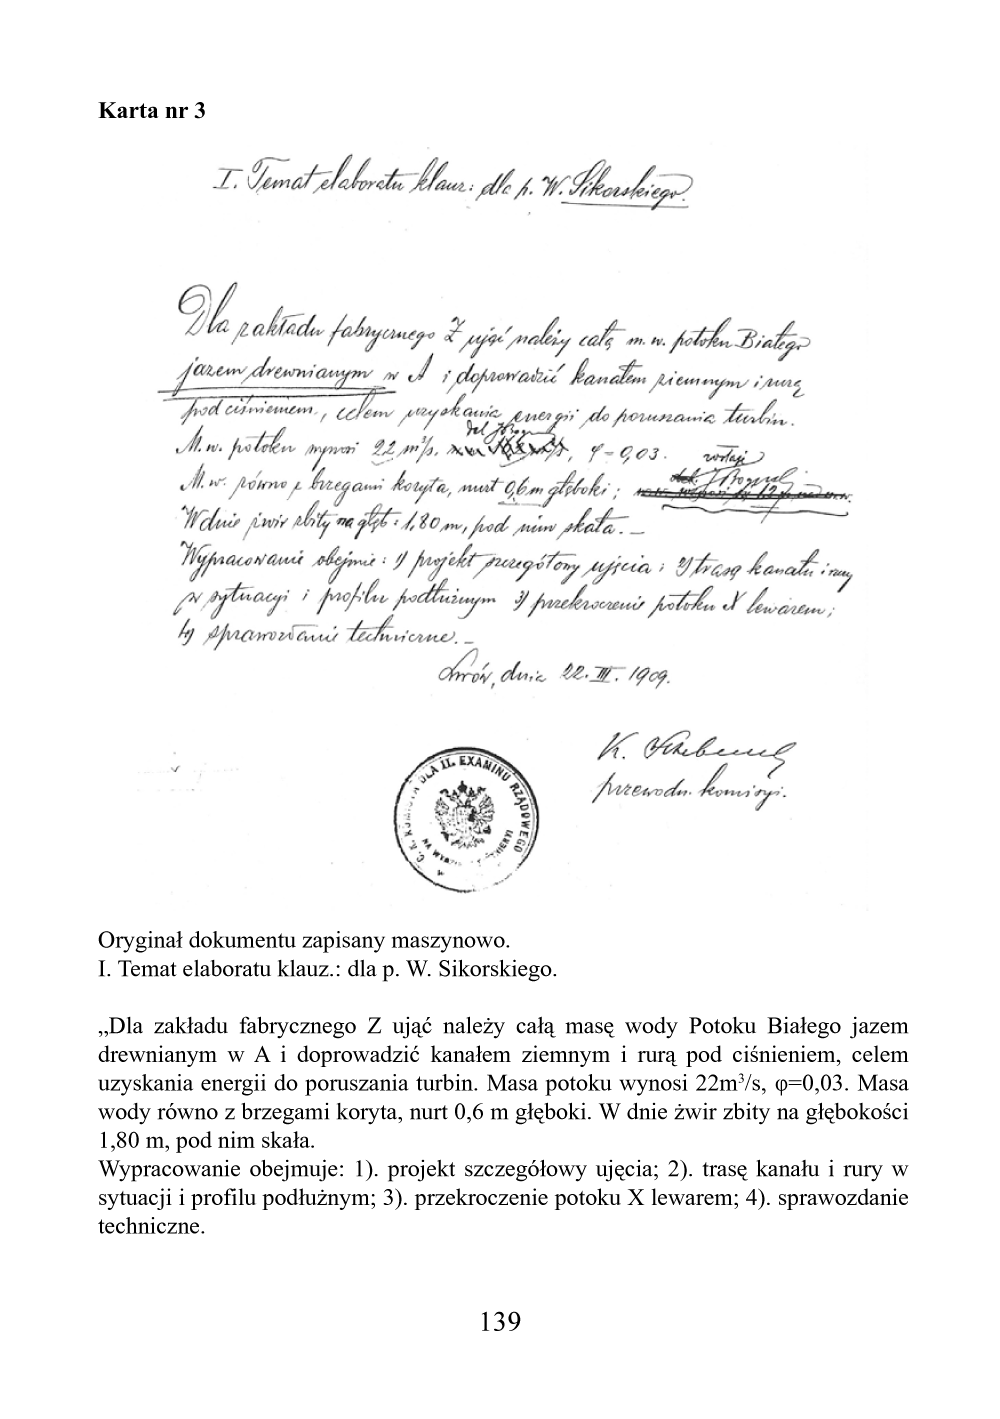 Karta nr 3
I. Temat elaboratu klauz: dla p. W. Sikorskiego.
Dla zakładu fabrycznego Z ująć należy całą m. w. potoku Białego
jazem drewnianym w A i doprowadzić kanałem ziemnym i rurą
pod ciśnieniem, celem uzyskania energii do poruszania turbin.
M. w. potoku wynosi 22 m³/s, φ = 0,03.
M. w. równo z brzegami koryta, nurt 0,6 m głęboki;
W dnie żwir zbity na głęb: 1,80 m, pod nim skała. –
Wypracowanie obejmie: 1) projekt szczegółowy ujęcia; 2) trasę kanału i rury
w sytuacyi i profilu podłużnym 3) przekroczenie potoku X lewarem;
4) sprawozdanie techniczne. –
Lwów, dnia 22. III. 1909.
K.
przewodn. komisyi.
C. K. KOMISYA DLA II. EXAMINU RZĄDOWEGO
Oryginał dokumentu zapisany maszynowo.
I. Temat elaboratu klauz.: dla p. W. Sikorskiego.
„Dla zakładu fabrycznego Z ująć należy całą masę wody Potoku Białego jazem
drewnianym w A i doprowadzić kanałem ziemnym i rurą pod ciśnieniem, celem
uzyskania energii do poruszania turbin. Masa potoku wynosi 22m³/s, φ=0,03. Masa
wody równo z brzegami koryta, nurt 0,6 m głęboki. W dnie żwir zbity na głębokości
1,80 m, pod nim skała.
Wypracowanie obejmuje: 1). projekt szczegółowy ujęcia; 2). trasę kanału i rury w
sytuacji i profilu podłużnym; 3). przekroczenie potoku X lewarem; 4). sprawozdanie
techniczne.
139